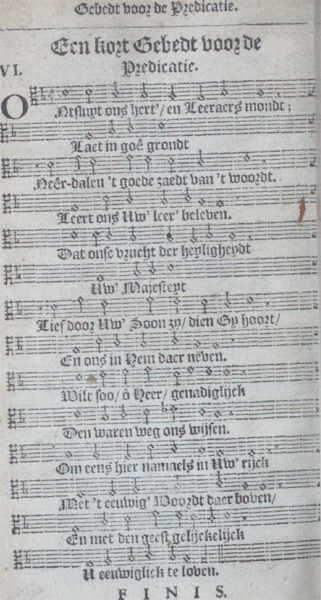 Gebedt voor de Predicatie.
Een kort Gebedt voor de
VI. Predicatie.
ONtsluyt ons hert'/ en Leeraers mondt;
Laet in goê grondt
Neêr-dalen 't goede zaedt van 't woordt.
Leert ons Uw' leer' beleven.
Dat onse vrucht der heyligheydt
Uw' Majesteyt
Lief door Uw' Soon zy/ dien Gy hoort/
En ons in Hem daer nêven.
Wilt soo/ ô Heer/ genadiglijck
Den waren weg ons wijsen.
Om eens hier namaels in Uw' rijck
Met 't eeuwig' Woordt daer boven/
En met den geest gelijckelijck
U eeuwiglick te loven.
FINIS.